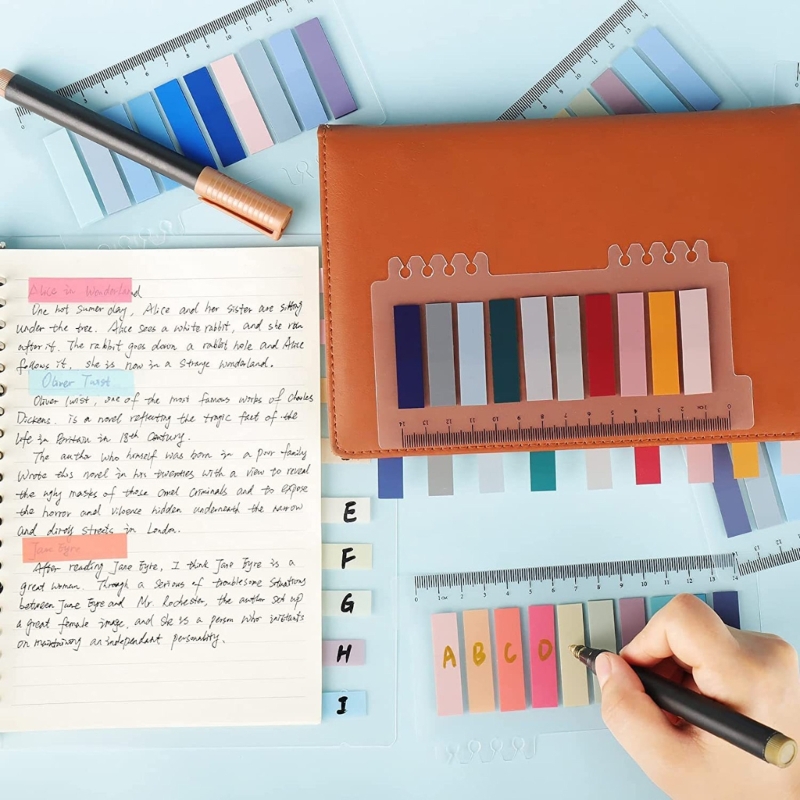 Alice in Wonderland
One hot sumer day, Alice and her sister are sitting
under the tree. Alice sees a white rabbit, and she run
after it. The rabbit goes down a rabbit hole and Alice
follows it, she is now in a strange wonderland.
Oliver Twist
Oliver Twist, one of the most famous works of Charles
Dickens. Is a novel reflecting the tragic fact of the
life in Britain in 18th Century.
The author who himself was born in a poor family
wrote this novel in his twenties with a view to reveal
the ugly masks of those cruel criminals and to expose
the horror and vilence hidden underneath the narrow
and streets in London.
Jane Eyre
After reading Jane Eyre, I think Jane Eyre is a
great woman. Through a serious of troublesome situations
between Jane Eyre and Mr. Rochester, the author set up
a great female image, and she is a person who
on maintaining an independant personality.
E
F
G
H
I
A B C D